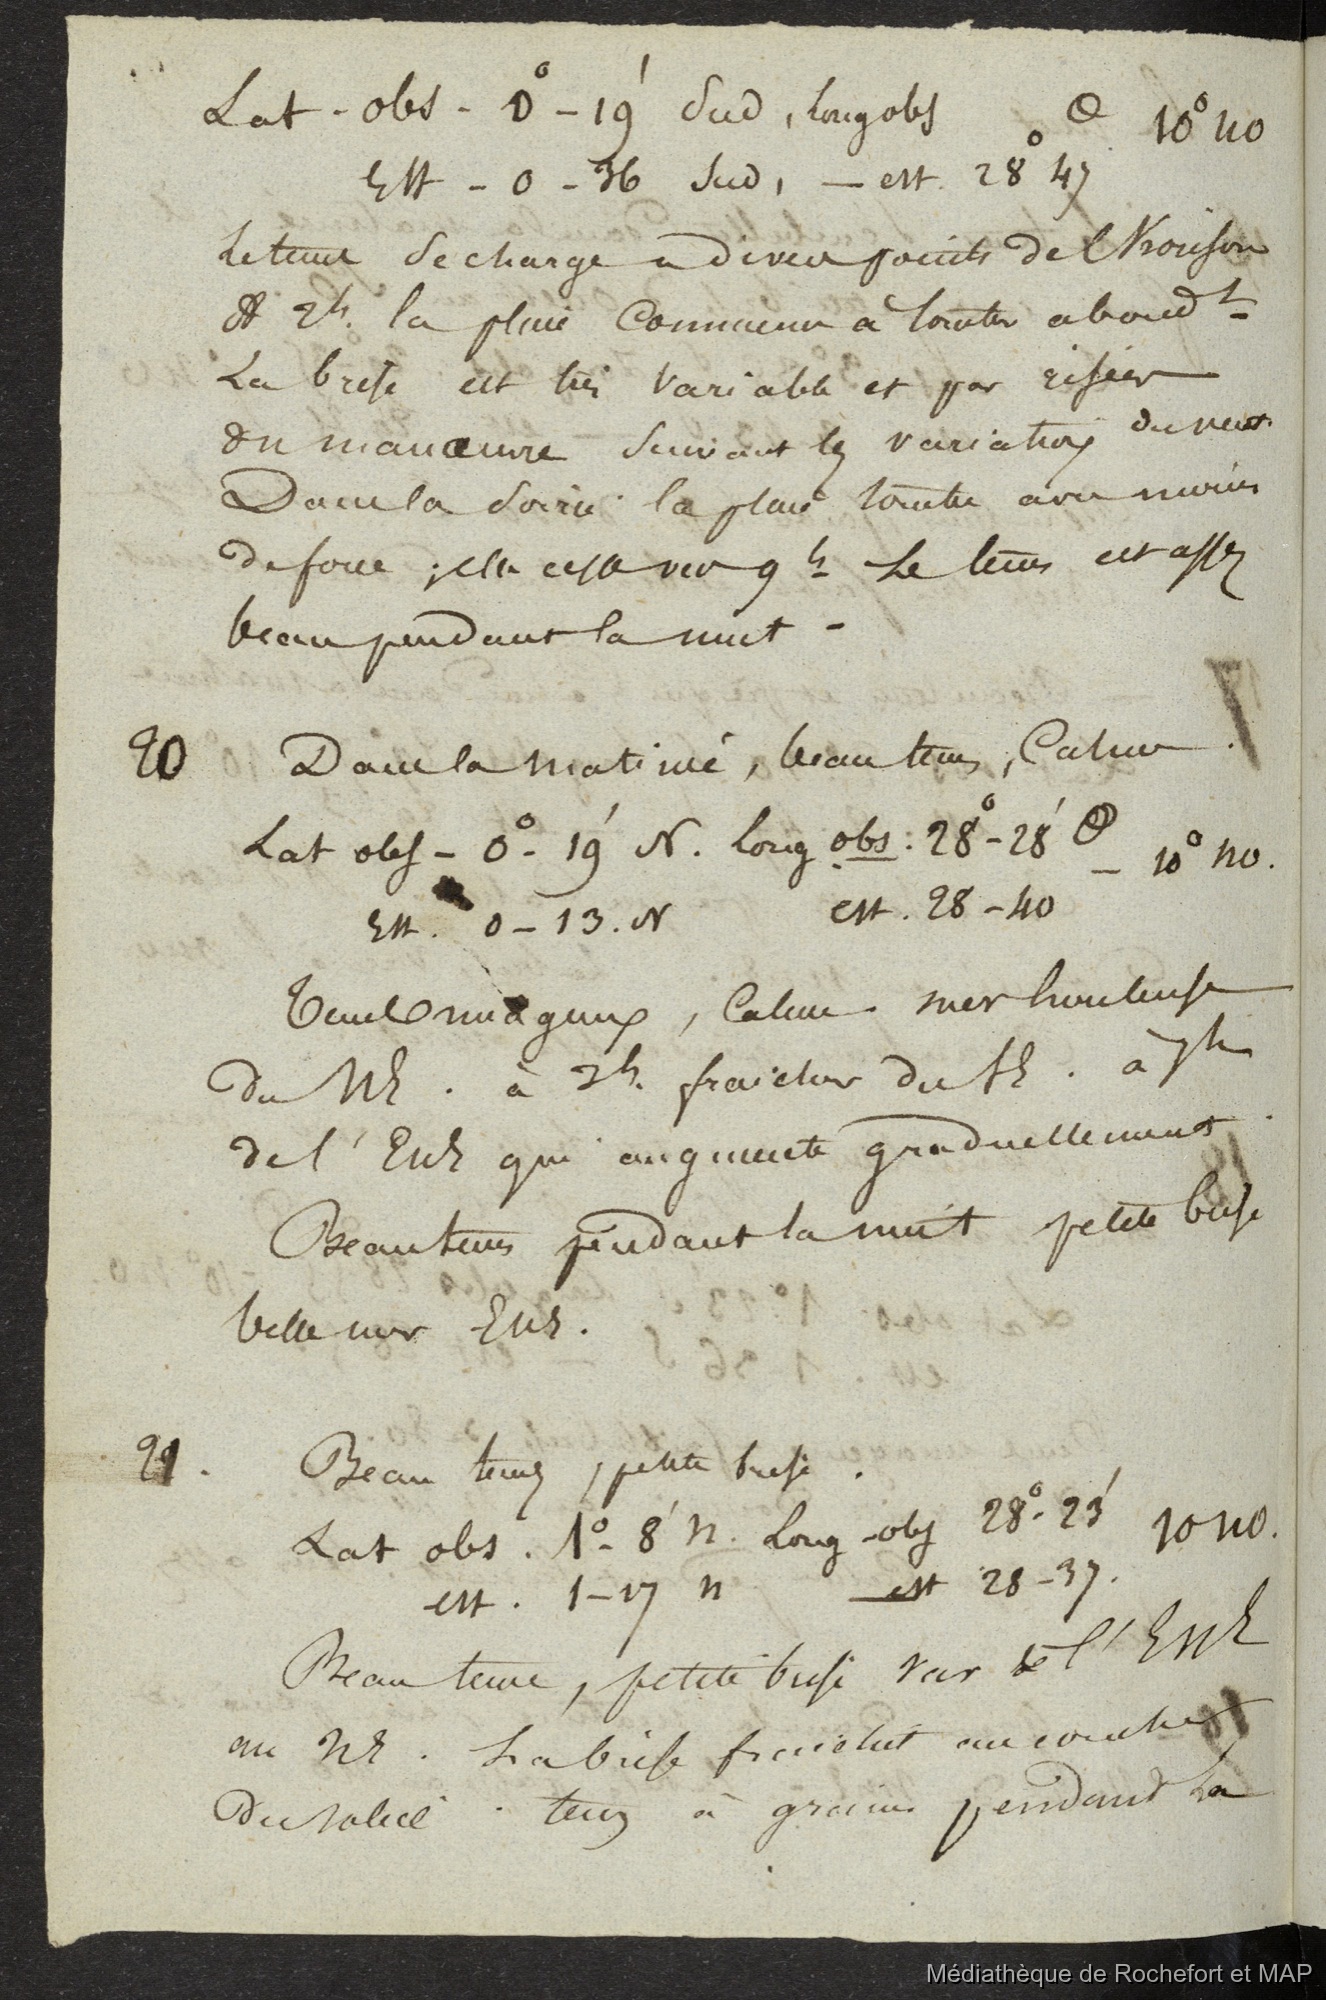 Lat - obs - 0° - 19' Sud, long obs O 10° no
Est - 0 - 36 Sud, - est. 28° 47
Le tems se charge a divers points de l'horison
A 2h. la pluie commence à tomber abondt
La brise est très variable et par risées
On manœuvre suivant les variations du vent
Dans la soirée la pluie tombe avec moins
de force ; elle cesse vers 9h Le tems est assez
beau pendant la nuit -
20 Dans la matinée, beau tems, Calme
Lat obs - 0° - 19' N. long obs: 28° - 28' O - 10° no.
Est. 0 - 13. N est. 28 - 40
Tems nuageux, Calme. mer houleuse
du NE. à 2h. fraicheur du SE. à 7h
de l'ENE qui augmente graduellement
Beau tems pendant la nuit petite brise
belle mer ENE.
21. Beau tems, petite brise.
Lat obs. 1° - 8' n. Long - obs 28° - 23' 10 no.
est. 1 - 17 n est 28 - 37.
Beau tems, petite brise var de l'ENE
au NE. La brise fraichit au coucher
du soleil. tems à grains pendant la
Médiathèque de Rochefort et MAP